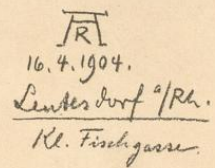 AR
16.4.1904.
Leutesdorf a/Rh.
Kl. Fischgasse.